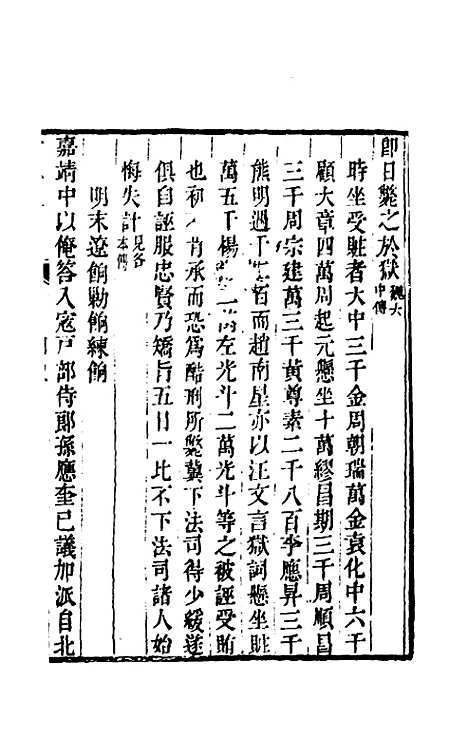 即日斃之於獄魏大中傳
時坐受贓者大中三千金周朝瑞萬金袁化中六千
顧大章四萬周起元懸坐十萬繆昌期三千周順昌
三千周宗建萬三千黃尊素二千八百李應昇三千
熊明遇千二百而趙南星亦以汪文言獄詞懸坐贓
萬五千楊漣二萬左光斗二萬光斗等之被誣受賄
也初不肯承而恐為酷刑所斃冀下法司得少緩遂
俱自誣服忠賢乃矯旨五日一比不下法司諸人始
悔失計見各本傳
明末遼餉勦餉練餉
嘉靖中以俺答入寇戶部侍郎孫應奎已議加派自北